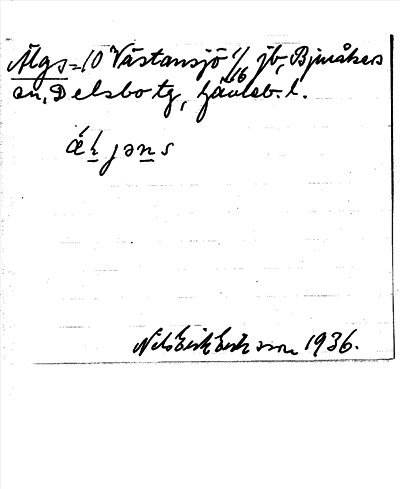 Älgs=10 Västansjö 1/16 jb, Bjuråkers
sn, Delsbo tg, Gävleb. l.
ǽl jəns
Nils Erik Eriksson 1936.